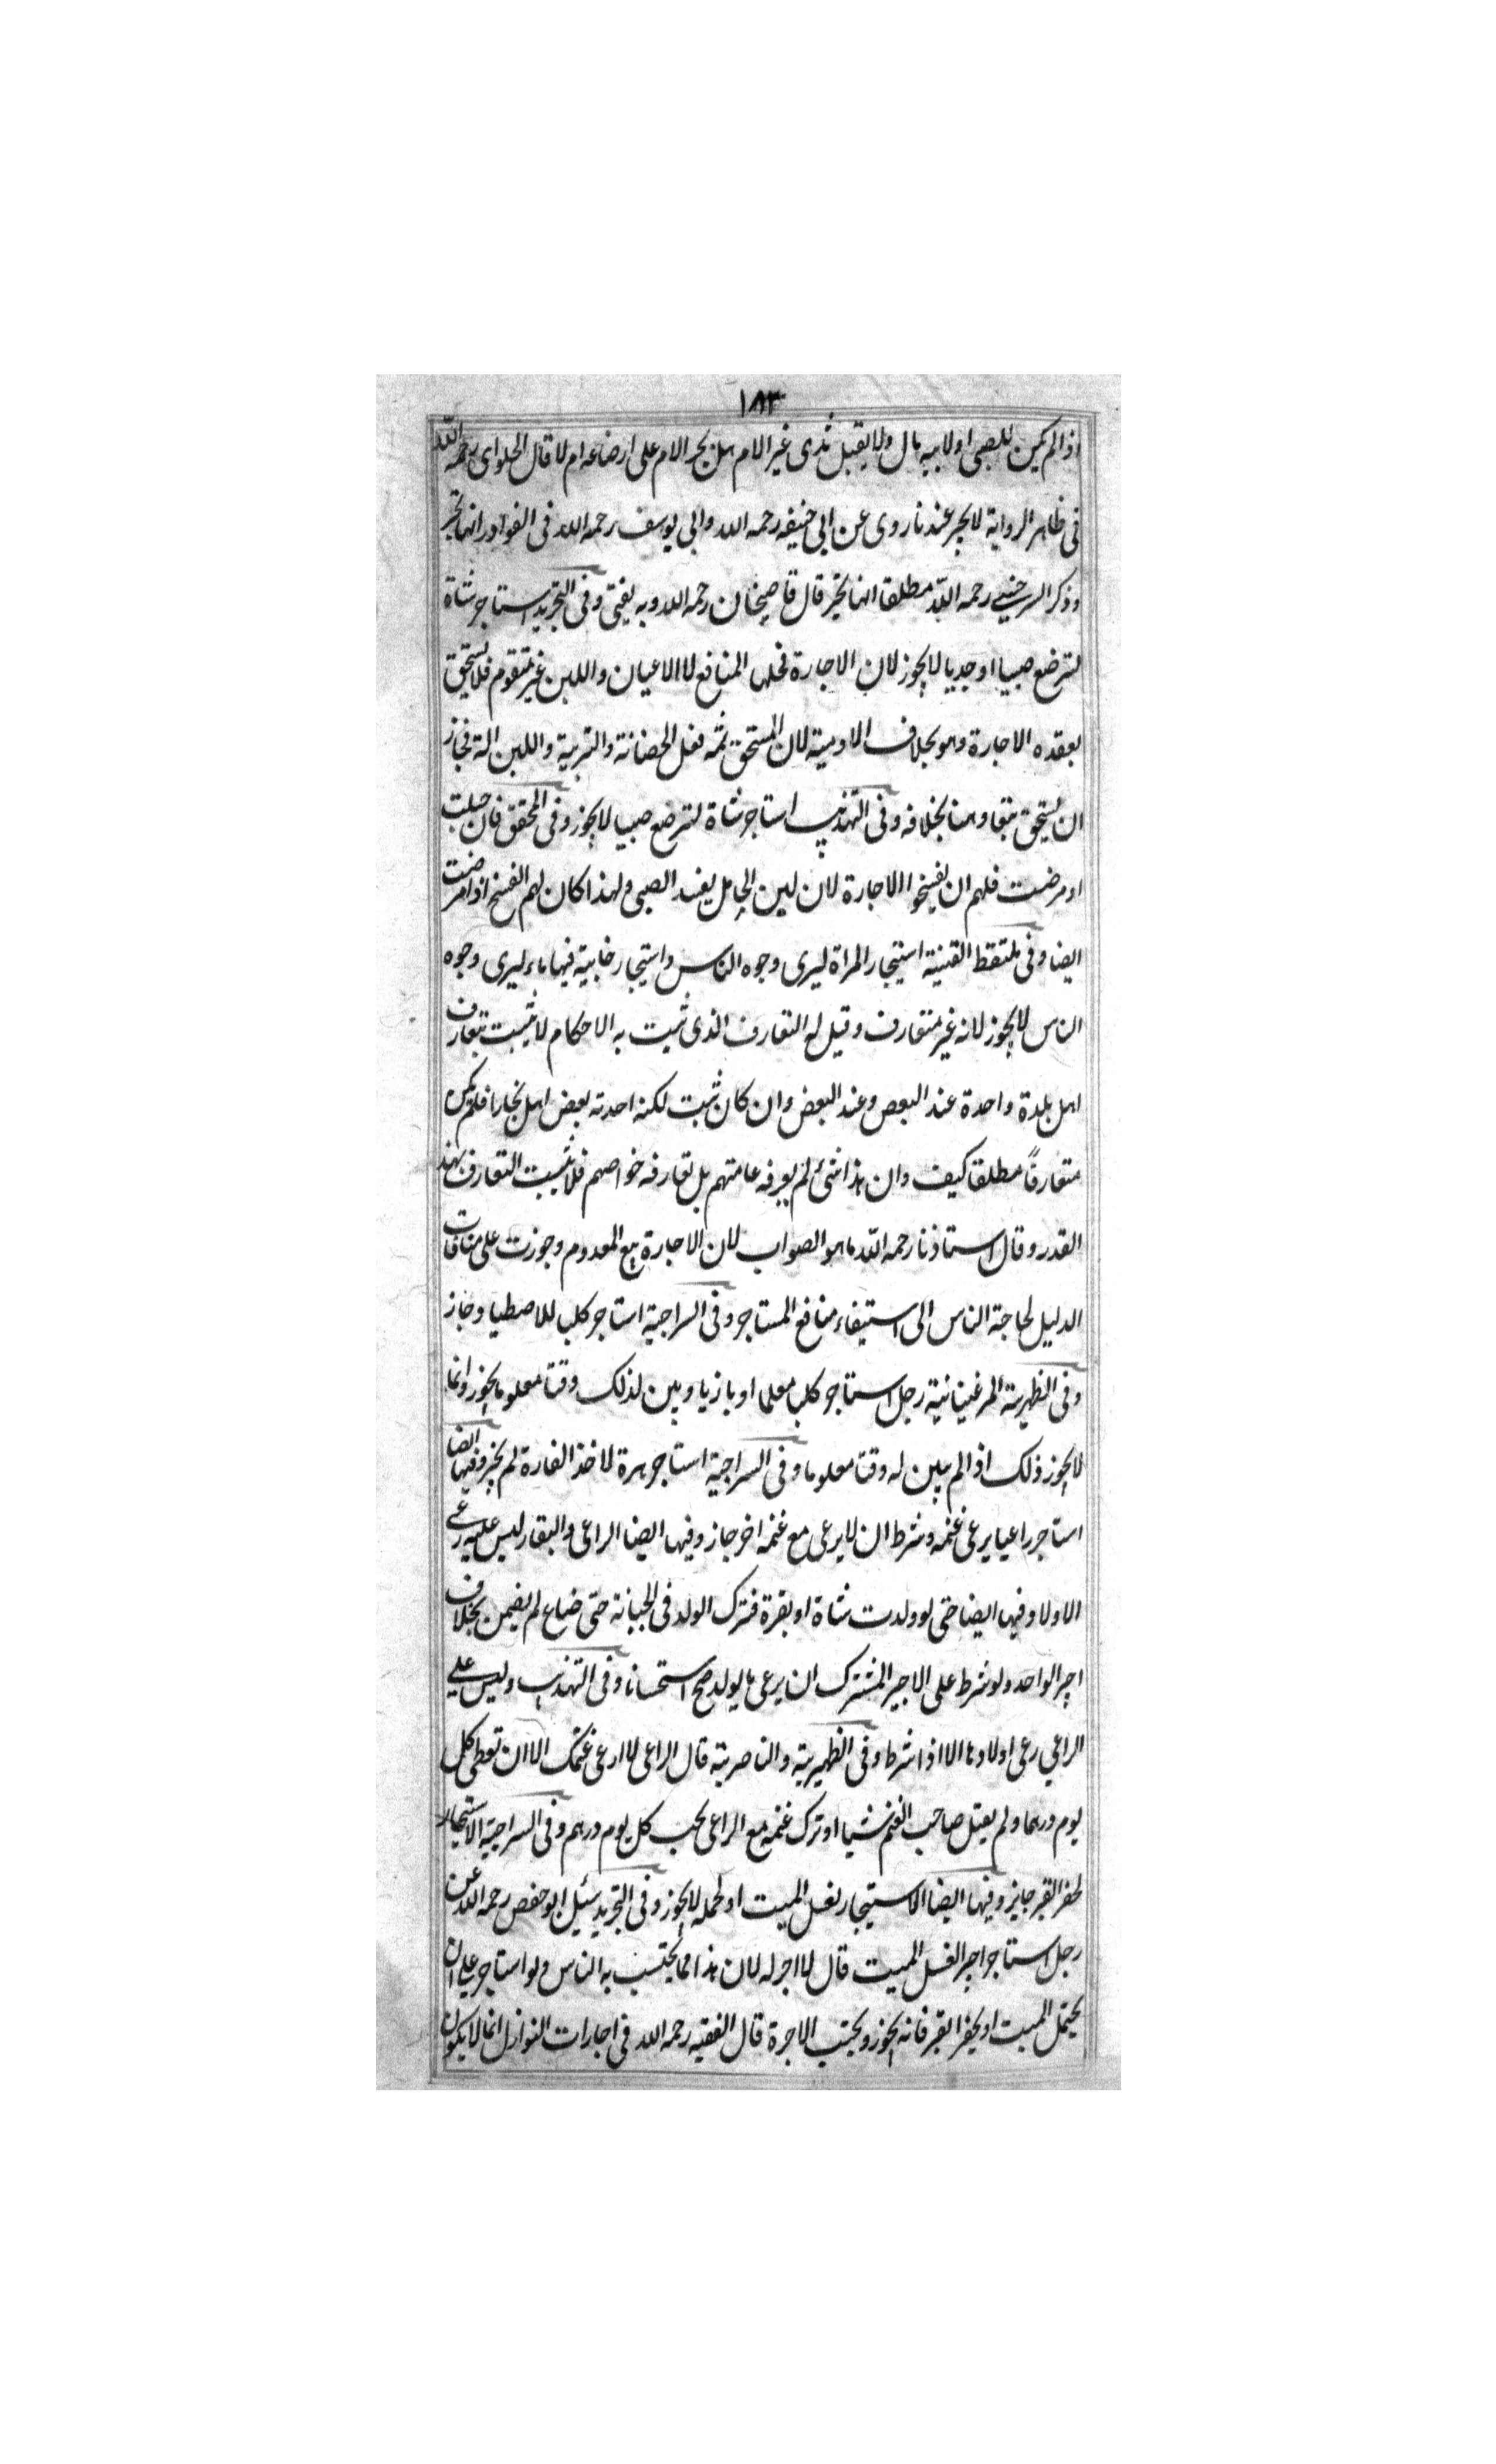 ١٨٣
اذا لم يكن للصبى او لابيه مال ولا يقبل ثدى غير الام هل يجبر الام على ارضاعه ام لا قال الحلواى رحمه الله
فى ظاهر الرواية لا يجبر عندنا روى عن ابى حنيفه رحمه الله وابى يوسف رحمه الله فى النوادر انها تجبر
وذكر السرخسى رحمه الله مطلقا انها تجبر قال قاضيخان رحمه الله وبه يفتى وفى التجريد استاجر شاة
لترضع صبيا او جديا لا يجوز لان الاجارة محلها المنافع لا الاعيان واللبن غير متقوم فلا يستحق
بعقده الاجارة وهو بخلاف الادمية لان المستحق ثمه فعل الحضانة والتربية واللبن الة فجاز
ان يستحق تبعا وهنا بخلافه وفى التهذيب استاجر شاة لترضع صبيا لا يجوز وفى المحقق فان حبلت
او مرضت فلهم ان يفسخوا الاجارة لان لبن الحامل يفسد الصبى ولهذا كان لهم الفسخ اذا مرضت
ايضا وفى ملتقط القنية استيجار المراة ليرى وجوه الناس واستيجار خابية فيها ماء ليرى وجوه
الناس لا يجوز لانه غير متعارف وقيل له التعارف الذى ثبت به الاحكام لا يثبت بتعارف
اهل بلدة واحدة عند البعض وعند البعض وان كان ثبت لكنه احدثه بعض اهل بخارا فلم يكن
متعارفاً مطلقا كيف وان هذا شئ لم يعرفه عامتهم بل تعارفه خواصهم فلا يثبت التعارف بهذ
القدر وقال استاذنا رحمه الله ما هو الصواب لان الاجارة بيع المعدوم وجوزت على منافات
الدليل لحاجة الناس الى استيفاء منافع المستاجر وفى السراجية استاجر كلب للاصطياد جاز
وفى الظهيرية المرغينانية رجل استاجر كلبا معلما او بازيا وبين لذلك وقتا معلوما يجوز وانما
لا يجوز ذلك اذا لم يبين له وقتا معلوما وفى السراجية استاجر هرة لاخذ الفارة لم يجز وفيها ايضا
استاجر راعيا يرعى غنمه وشرط ان لا يرعى مع غنمه اخر جاز وفيها ايضا الراعى والبقار ليس عليه رعى
الاولاد وفيها ايضا حتى لو ولدت شاة او بقرة فترك الولد فى الجبانة حتى ضاع لم يضمن بخلاف
اجير الواحد ولو شرط على الاجير المشترك ان يرعى ما يولد صح استحسانا وفى التهذيب وليس على
الراعى رعى اولادها الا اذا شرط وفى الظهيرية والناصرية قال الراعى لا ارعى غنمك الا ان تعطى كل
يوم درهما ولم يقبل صاحب الغنم شيا او ترك غنمه مع الراعى يجب كل يوم درهم وفى السراجية الاستيجار
لحفر القبر جايز وفيها ايضا الاستيجار لغسل الميت او لحمله لا يجوز وفى التجريد سئيل ابو حفص رحمه الله عن
رجل استاجر اجيرا لغسل الميت قال لا اجر له لان هذا مما يحتسب به الناس ولو استاجر على ان
يحتمل الميت او يحفر القبر فانه يجوز ويجب الاجرة قال الفقيه رحمه الله فى اجارات النوازل انما لا يكون